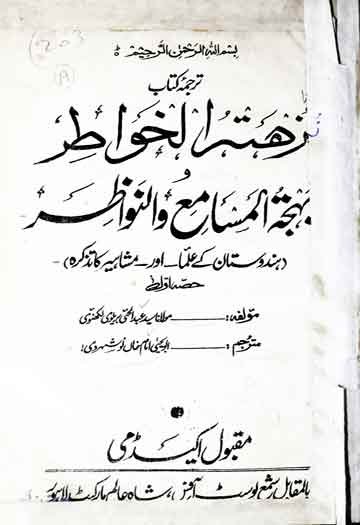 بسم اللہ الرحمن الرحیم
ترجمۂ کتاب
نزھتہ الخواطر
و
بہجۃ المسامع والنواظر
(ہندوستان کے علما۔ اور۔ مشاہیر کا تذکرہ)
حصہ اول
مؤلفہ: مولانا سید عبدالحئی بریلوی لکھنوی
مترجم: ابو یحییٰ امام خاں نوشہروی
مقبول اکیڈمی
بالمقابل شمع پوسٹ آفس، شاہ عالم مارکٹ لاہور